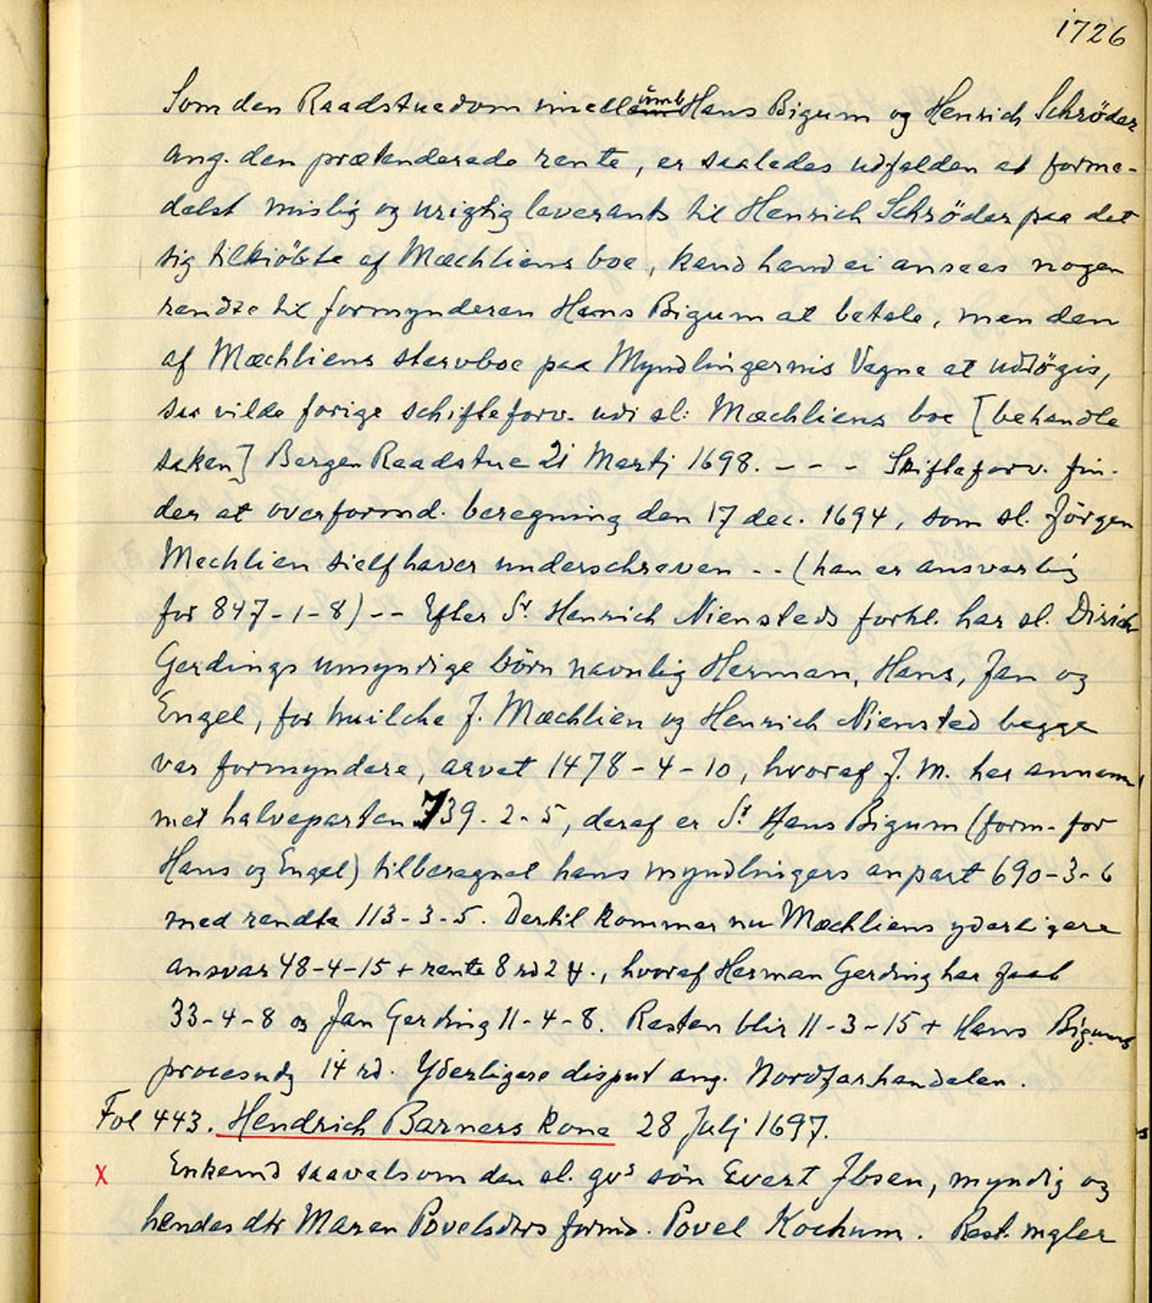 1726
Som den Raadstuedom imellumb Hans Bigum og Henrich Schröder
ang. den prætenderede rente, er saaledes udfalden at forme-
delst mislig og urigtig leverants til Henrich Schröder paa det
sig tilkiöbte af Mæchliens boe, kand hand ei ansees nogen
rendte til formynderen Hans Bigum at betale, men den
af Mæchliens sterboe paa Myndlingernis Vegne at udsögis,
saa vilde forige schifteforv. udi sl: Mæchliens boe [behandle
saken] Bergen Raadstue 21 Martj 1698. - - - Skifteforv. fin-
der at overformd. beregning den 17 dec. 1694, som sl. Jörgen
Mechlien sielf haver underschreven - - (han er ansvarlig
for 847-1-8) -- Efter Sr. Henrich Niensteds forkl. har sl. Dirich
Gerdings umyndige börn navnlig Herman, Hans, Jan og
Engel, for huilche J. Mæchlien og Henrich Niensted begge
var formyndere, arvet 1478-4-10, hvoraf J. M. har annam
met halveparten 739-2-5, deraf er Sr. Hans Bigum (form. for
Hans og Engel) tilberegnet hans myndlingers anpart 690-3-6
med rendte 113-3-5. Dertil kommer nu Mæchliens yderligere
ansvar 48-4-15 + rente 8 rd 2 ., hvoraf Herman Gerding har faat
33-4-8 og Jan Gerding 11-4-8. Resten blir 11-3-15 + Hans Bigums
procesudg 14 rd. Yderligere disput ang. Nordfarhandelen.
Fol 443. Hendrich Barners kone 28 Julj 1697.
x Enkemd saavelsom den sl. qvs sön Evert Ibsen, myndig og
hendes dtr Maren Povelsdrs formd. Povel Kochum. Rest. mgler